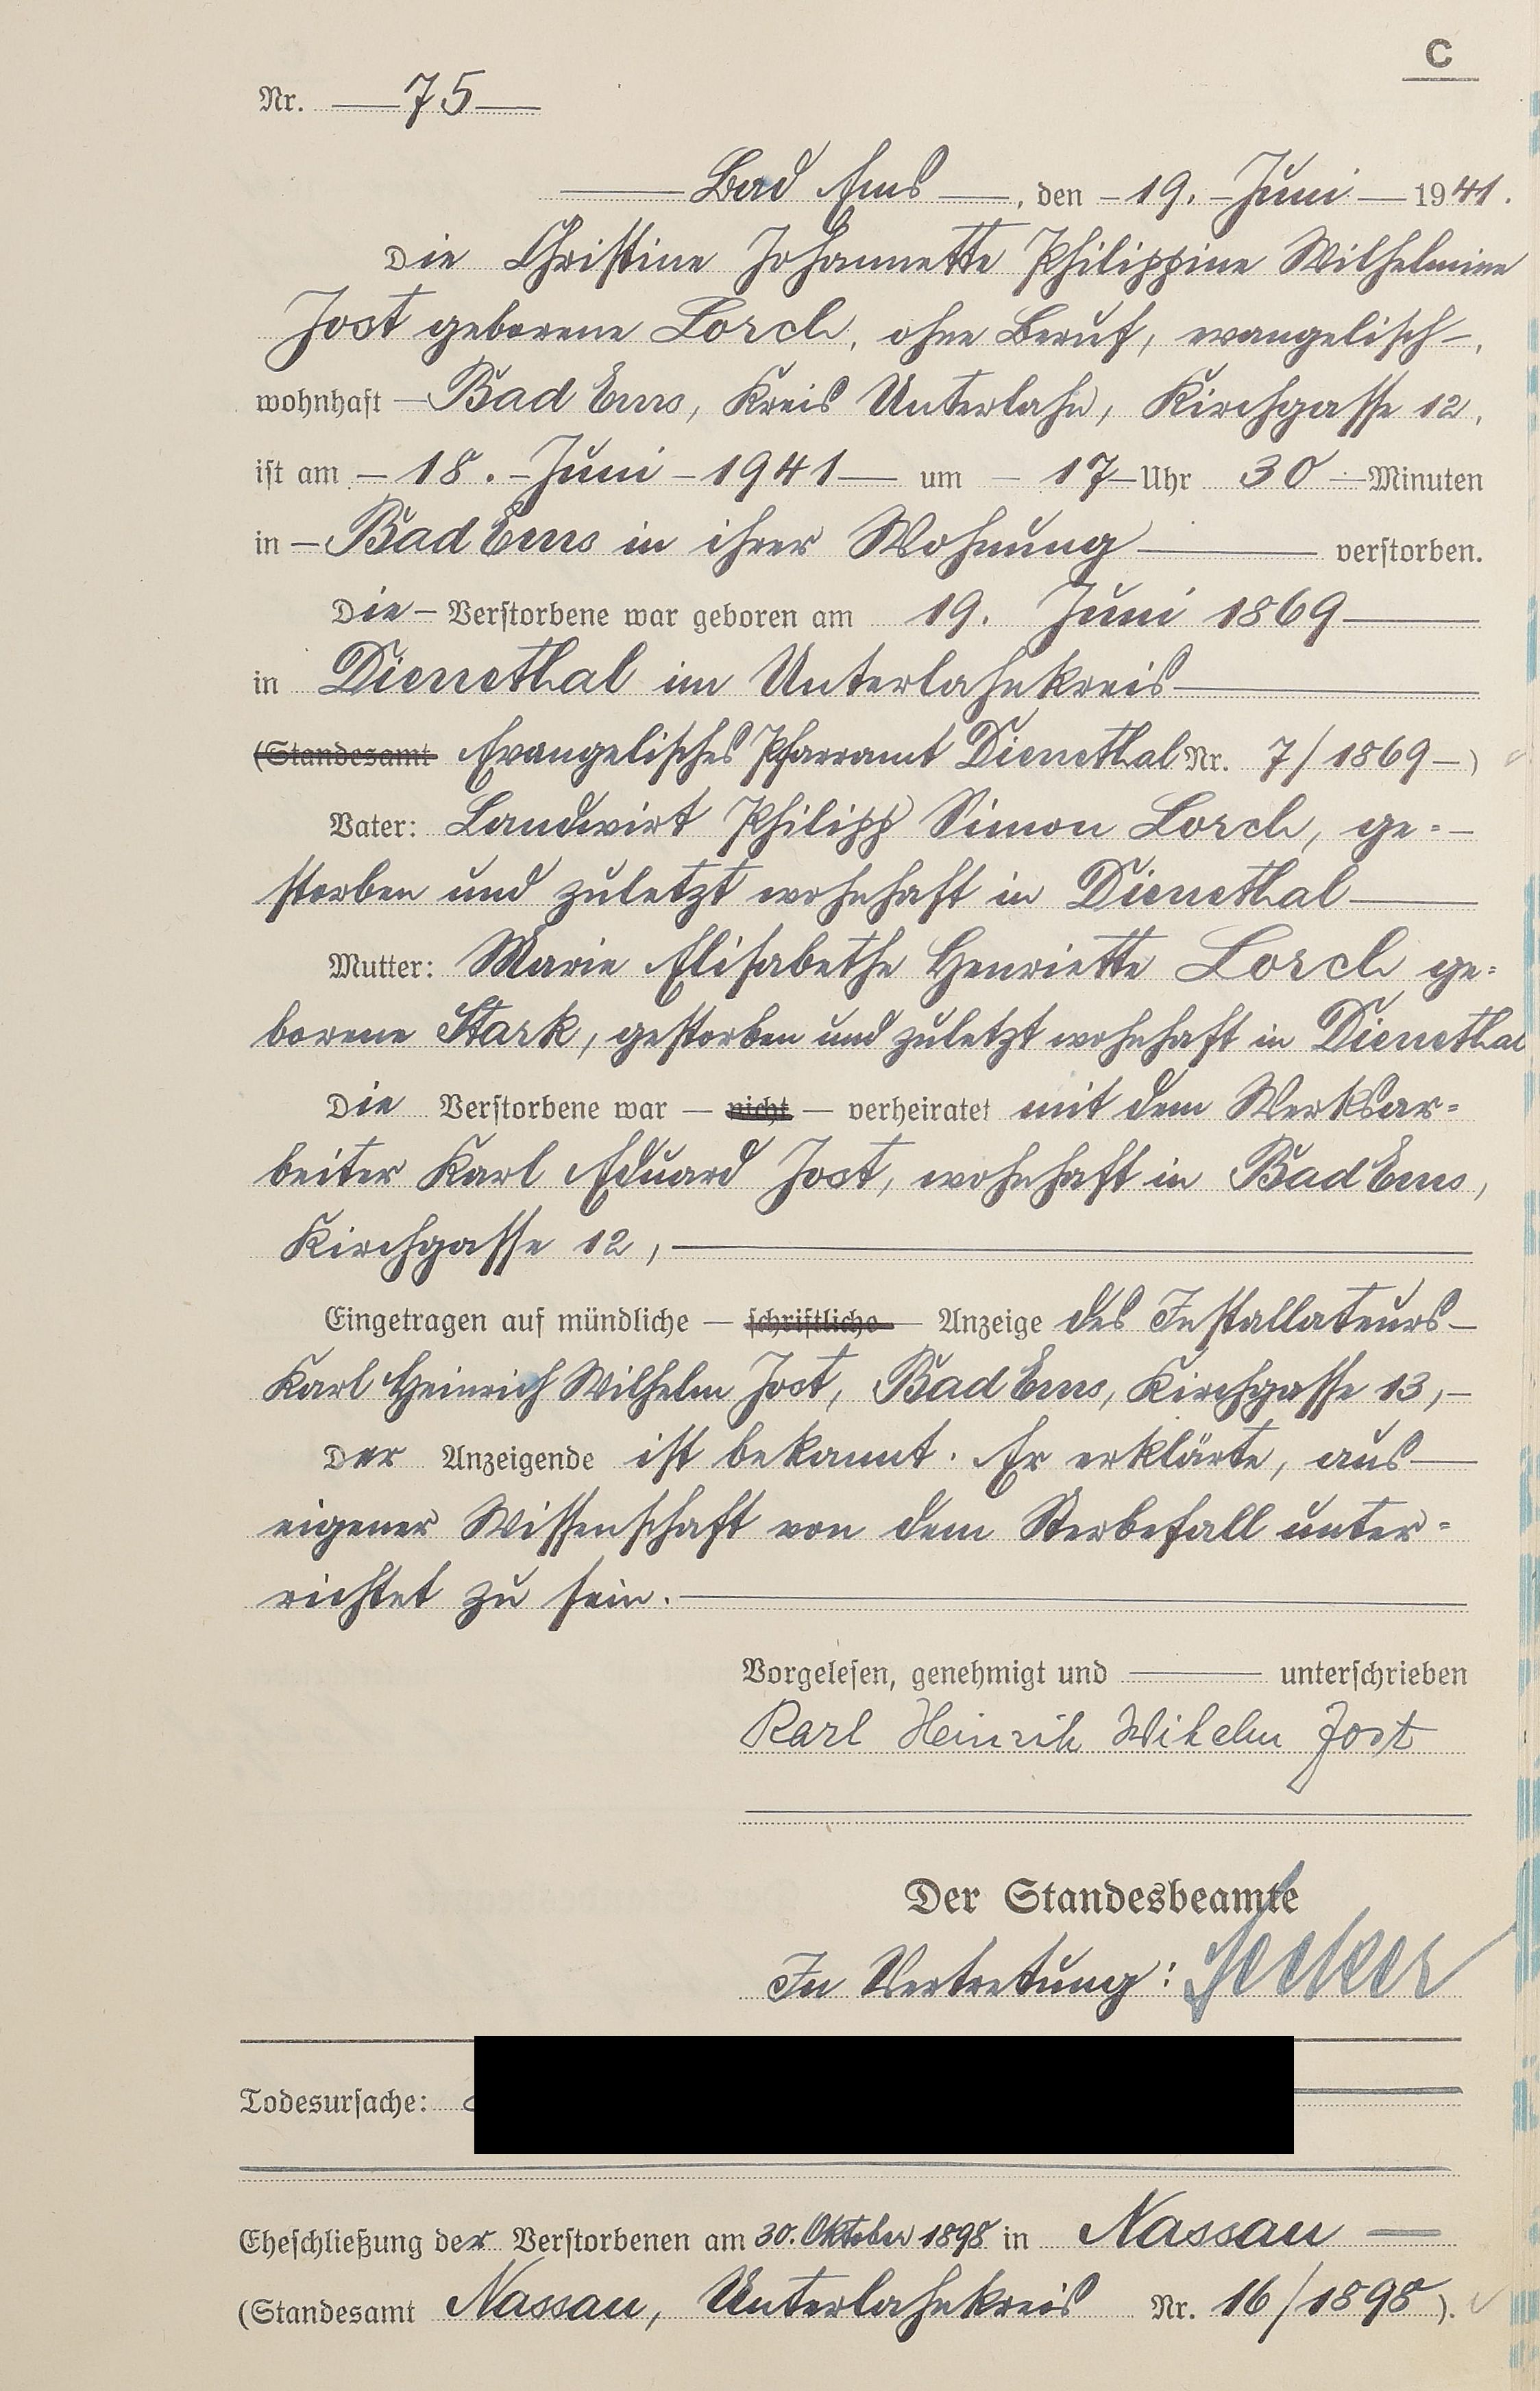 C
Nr. 75
Bad Ems, den 19. Juni 1941.
Die Christine Johannette Philippine Wilhelmine
Jost geborene Lorch, ohne Beruf, evangelisch,
wohnhaft Bad Ems, Kreis Unterlahn, Kirchgasse 12,
ist am 18. Juni 1941 um 17 Uhr 30 Minuten
in Bad Ems in ihrer Wohnung verstorben.
Die Verstorbene war geboren am 19. Juni 1869
in Dienethal im Unterlahnkreis
(Standesamt Evangelisches Pfarramt Dienethal Nr. 7/1869)
Vater: Landwirt Philipp Simon Lorch, ge=
storben und zuletzt wohnhaft in Dienethal
Mutter: Marie Elisabethe Henriette Lorch ge=
borene Stark, gestorben und zuletzt wohnhaft in Dienethal
Die Verstorbene war — nicht — verheiratet mit dem Werksar=
beiter Karl Eduard Jost, wohnhaft in Bad Ems,
Kirchgasse 12,
Eingetragen auf mündliche — schriftliche — Anzeige des Installateurs
Karl Heinrich Wilhelm Jost, Bad Ems, Kirchgasse 13,
Der Anzeigende ist bekannt. Er erklärte, aus
eigener Wissenschaft von dem Sterbefall unter=
richtet zu sein.
Vorgelesen, genehmigt und unterschrieben
Karl Heinrih Wilhelm Jost
Der Standesbeamte
In Vertretung:
Todesursache:
Eheschließung der Verstorbenen am 30. Oktober 1898 in Nassau
(Standesamt Nassau, Unterlahnkreis Nr. 16/1898).